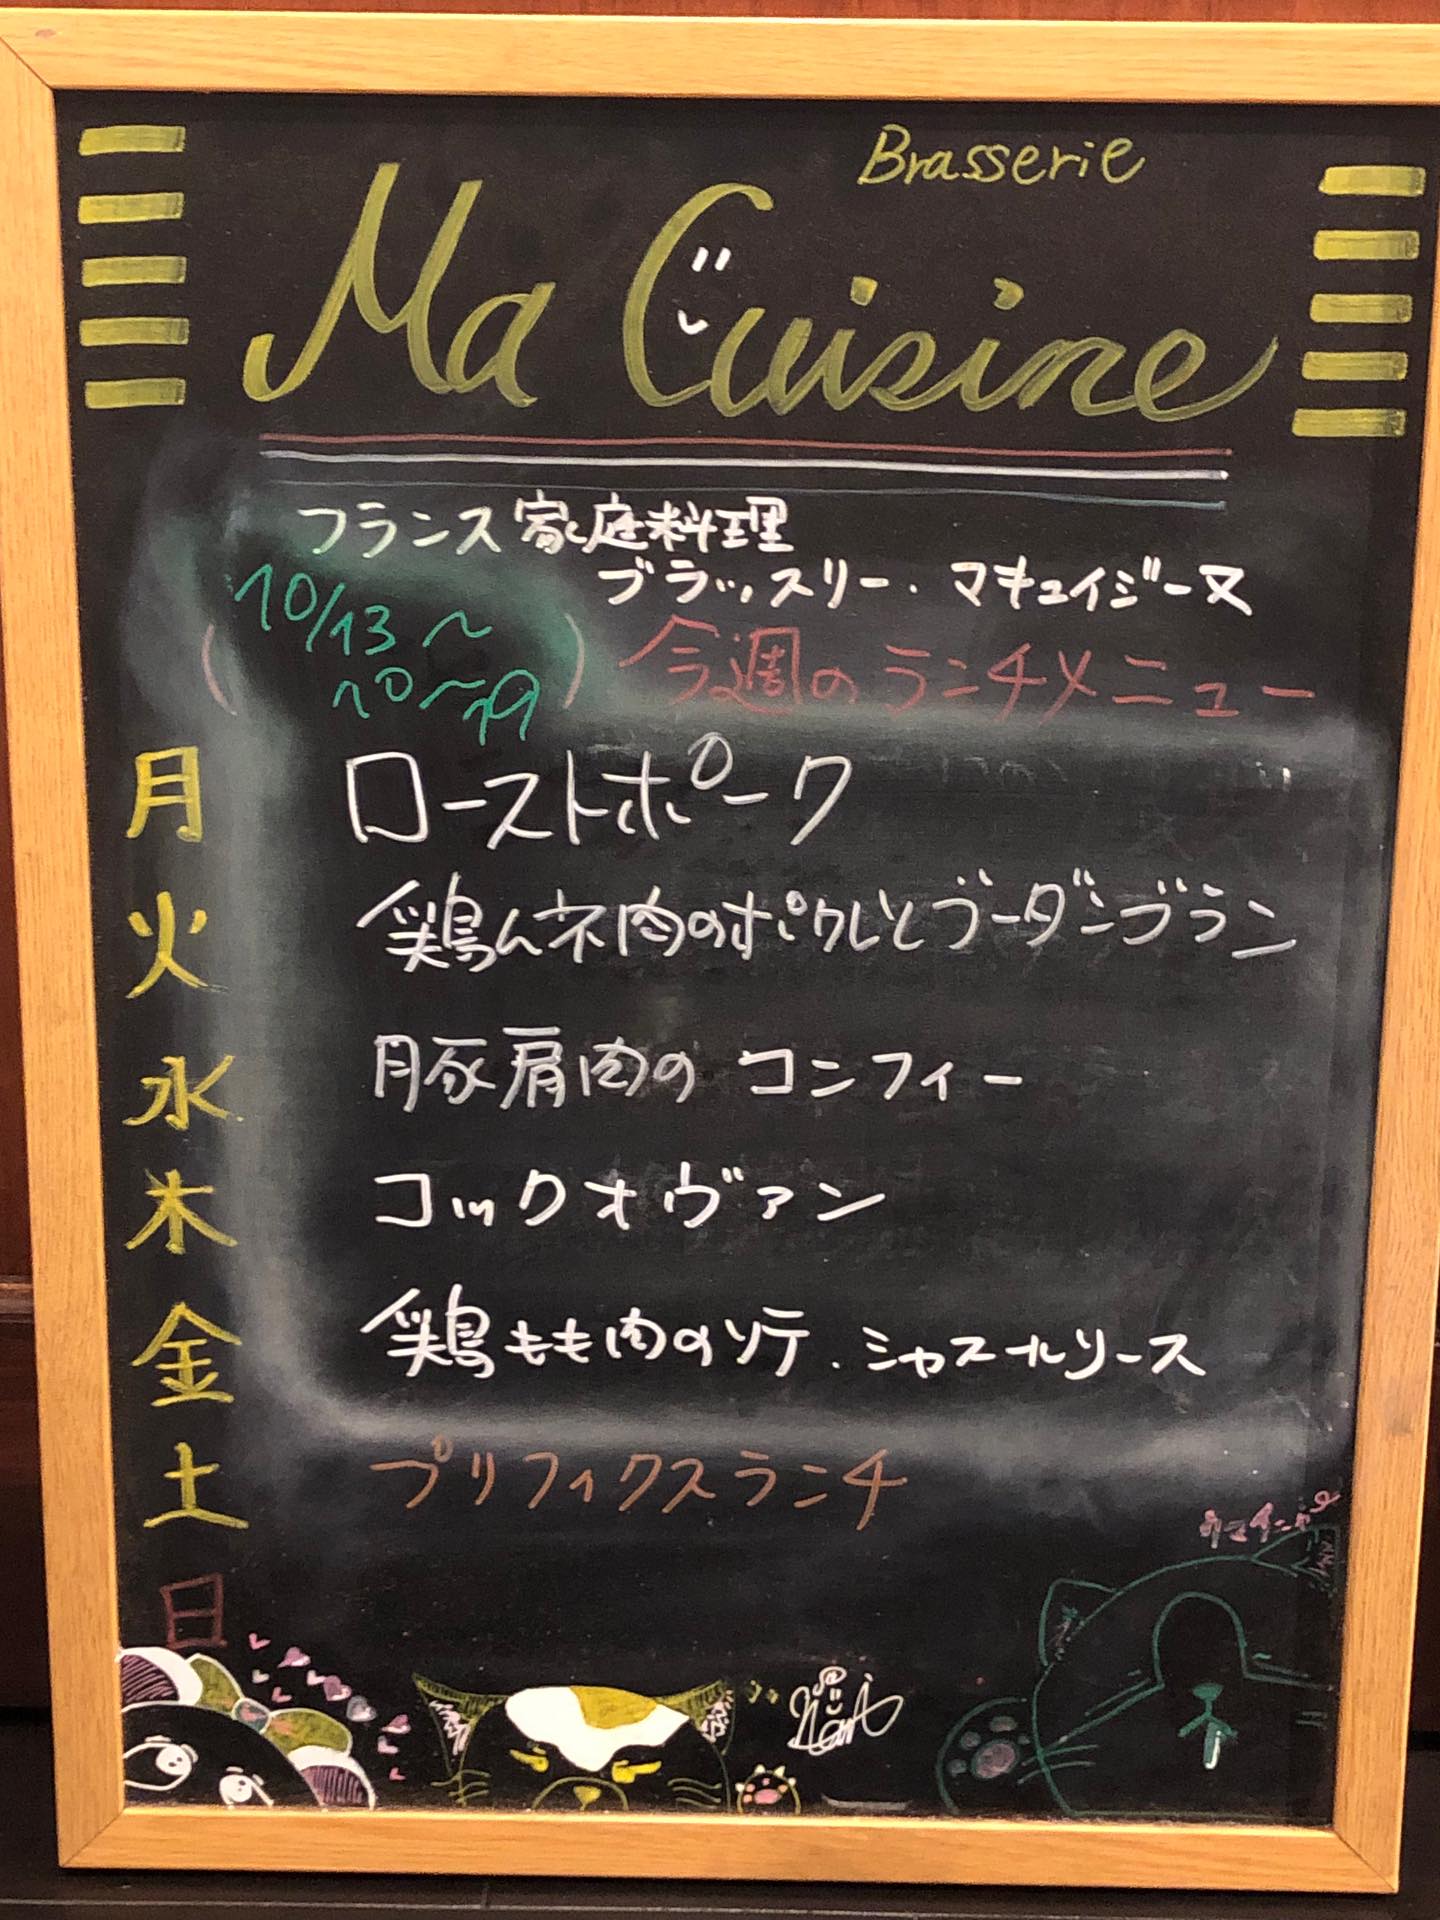 Brasserie
Ma Cuisine
フランス家庭料理
ブラッスリー・マキュイジーヌ
(10/13〜
10〜19) 今週のランチメニュー
月 ローストポーク
火 鶏ムネ肉のポワレとブーダンブラン
水 豚肩肉のコンフィー
木 コックオヴァン
金 鶏もも肉のソテ.シャスールソース
土 プリフィクスランチ
日